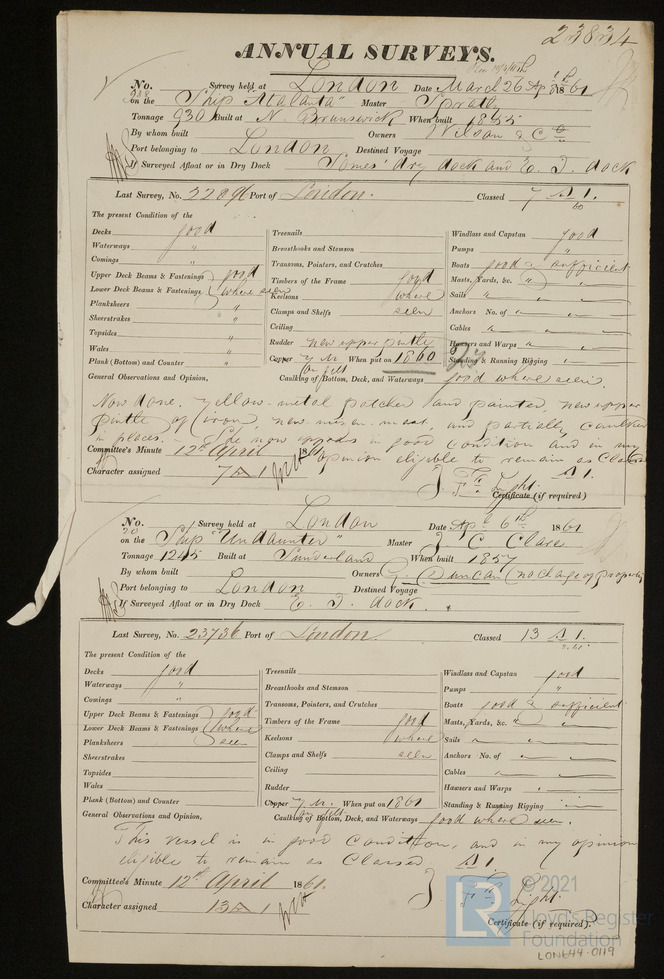 23834
ANNUAL SURVEYS.
No. Survey held at London Date March 26 Apl 1861
on the Ship "Atalanta" Master Spratly
Tonnage 930 Built at N. Brunswick When built 1855
By whom built Owners Wilson & Co
Port belonging to London Destined Voyage
If Surveyed Afloat or in Dry Dock Somes' dry dock and E. I. dock
Last Survey, No. 22896 Port of London. Classed 7 A 1.
60
The present Condition of the
Decks good
Waterways "
Comings "
Upper Deck Beams & Fastenings good
Lower Deck Beams & Fastenings where seen
Planksheers "
Sheerstrakes "
Topsides "
Wales "
Plank (Bottom) and Counter "
Treenails
Breasthooks and Stemson
Transoms, Pointers, and Crutches
Timbers of the Frame good
Keelsons where
Clamps and Shelfs seen
Ceiling
Rudder new upper pintle
Copper y.m. When put on 1860
on felt
Windlass and Capstan good
Pumps "
Boats good & sufficient
Masts, Yards, &c. "
Sails "
Anchors No. of "
Cables "
Hawsers and Warps "
Standing & Running Rigging "
General Observations and Opinion, Caulking of Bottom, Deck, and Waterways good where seen.
Now done. Yellow metal patched and painted, new upper
pintle of iron, new mizen mast, and partially caulked
in places. She now appears in good condition and in my
opinion eligible to remain as Classed A 1.
Committee's Minute 12th April 1861
Character assigned 7 A 1
Certificate (if required)
No. Survey held at London Date Apl 6th 1861
on the Ship "Undaunted" Master J C Clare
Tonnage 1245 Built at Sunderland When built 1857
By whom built Owners Duncan (no change of property
Port belonging to London Destined Voyage
If Surveyed Afloat or in Dry Dock E. I. dock.
Last Survey, No. 23736 Port of London. Classed 13 A 1.
The present Condition of the
Decks good
Waterways "
Comings "
Upper Deck Beams & Fastenings good
Lower Deck Beams & Fastenings where
Planksheers seen
Sheerstrakes
Topsides
Wales
Plank (Bottom) and Counter
Treenails
Breasthooks and Stemson
Transoms, Pointers, and Crutches
Timbers of the Frame good
Keelsons where
Clamps and Shelfs seen
Ceiling
Rudder
Copper y.m. When put on 1861
on felt
Windlass and Capstan good
Pumps "
Boats good & sufficient
Masts, Yards, &c. "
Sails "
Anchors No. of "
Cables "
Hawsers and Warps "
Standing & Running Rigging "
General Observations and Opinion, Caulking of Bottom, Deck, and Waterways good where seen.
This vessel is in good condition, and in my opinion
eligible to remain as Classed A 1.
Committee's Minute 12th April 1861.
Character assigned 13 A 1
Certificate (if required).
© 2021
Lloyd's Register
Foundation
LON644-0119